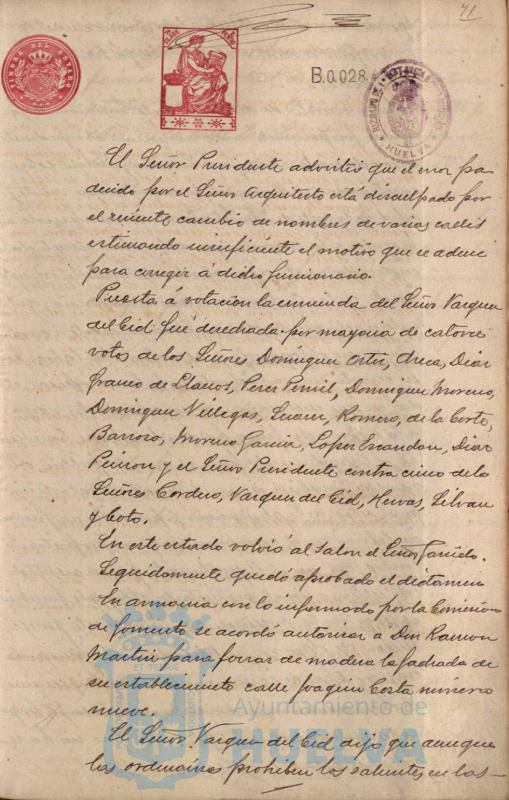 71
B.0.028
HUELVA
El Señor Presidente advirtió que el error pa-
decido por el Señor Arquitecto está disculpado por
el reciente cambio de nombres de varias calles
estimando insuficiente el motivo que se aduce
para corregir á dicho funcionario.
Puesta á votacion la enmienda del Señor Vazquez
del Cid fué desechada por mayoria de catorce
votos de los Señores Dominguez Ortiz, Checa, Diaz
Franco de Llanos, Perez Pomil, Dominguez Moreno,
Dominguez Villegas, Suarez, Romero, de la Corte,
Barroso, Moreno Garcia, Lopez Escandon, Diaz
y el Señor Presidente contra cinco de los
Señores Cordero, Vazquez del Cid, Hervas, Silvan
y Coto.
En este estado volvió al salon el Señor Garrido.
Seguidamente quedó aprobado el dictamen
En armonia con lo informado por la Comision
de fomento se acordó autorizar á Don Ramon
Martin para forrar de madera la fachada de
su establecimiento calle Joaquin Costa número
nueve.
El Señor Vazquez del Cid dijo que aunque
las ordenanzas prohiben los salientes en las
Ayuntamiento de
HUELVA